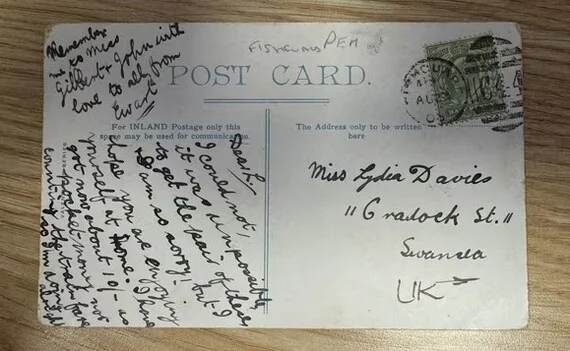 FISHGUARD PEM
POST CARD.
For INLAND Postage only this
space may be used for communication.
The Address only to be written
here
Miss Lydia Davies
"11 Cradock St."
Swansea
UK
Remember
me to Miss
Gilbert & John with
love to all from
Ewart
Dear L,
I could not,
it was impossible
to get the pair of these
I am so sorry! but I
hope you are enjoying
yourself at home. I have
got now about 10/- as
pocket money not
counting the train fare
so I'm doing
alright